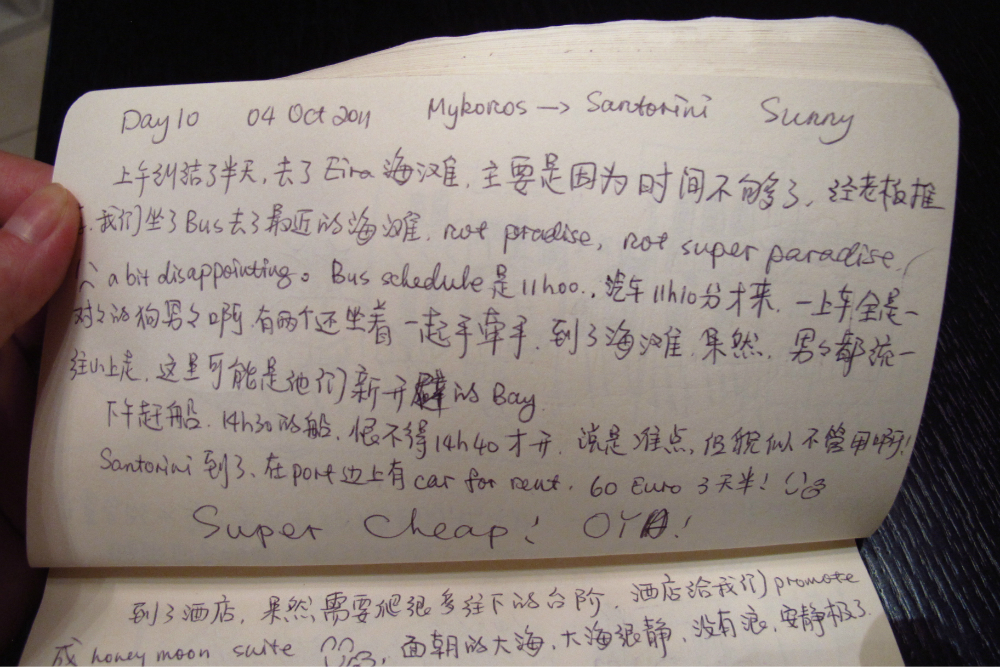 Day 10 04 Oct 2011 Mykonos → Santorini Sunny
上午纠结了半天,去了Eira海滩,主要是因为时间不够了,经老板推
我们坐了Bus去了最近的海滩. not pradise, not super paradise.
a bit disappointing。Bus schedule是11h00.,汽车11h10分才来. 一上车全是一
对々的狗男々啊,有两个还坐着一起手牵手,到了海滩,果然,男々都统一
往山上走,这里可能是他们新开辟的Bay.
下午赶船. 14h30的船,恨不得14h40才开,说是准点,但貌似不管用啊!
Santorini到了、在port边上有car for rent. 60 Euro 3天半!
Super Cheap! OYA!
到了酒店,果然需要爬很多往下的台阶,酒店给我们promote
成 honey moon suite 面朝的大海,大海很静,没有浪,安静极了.